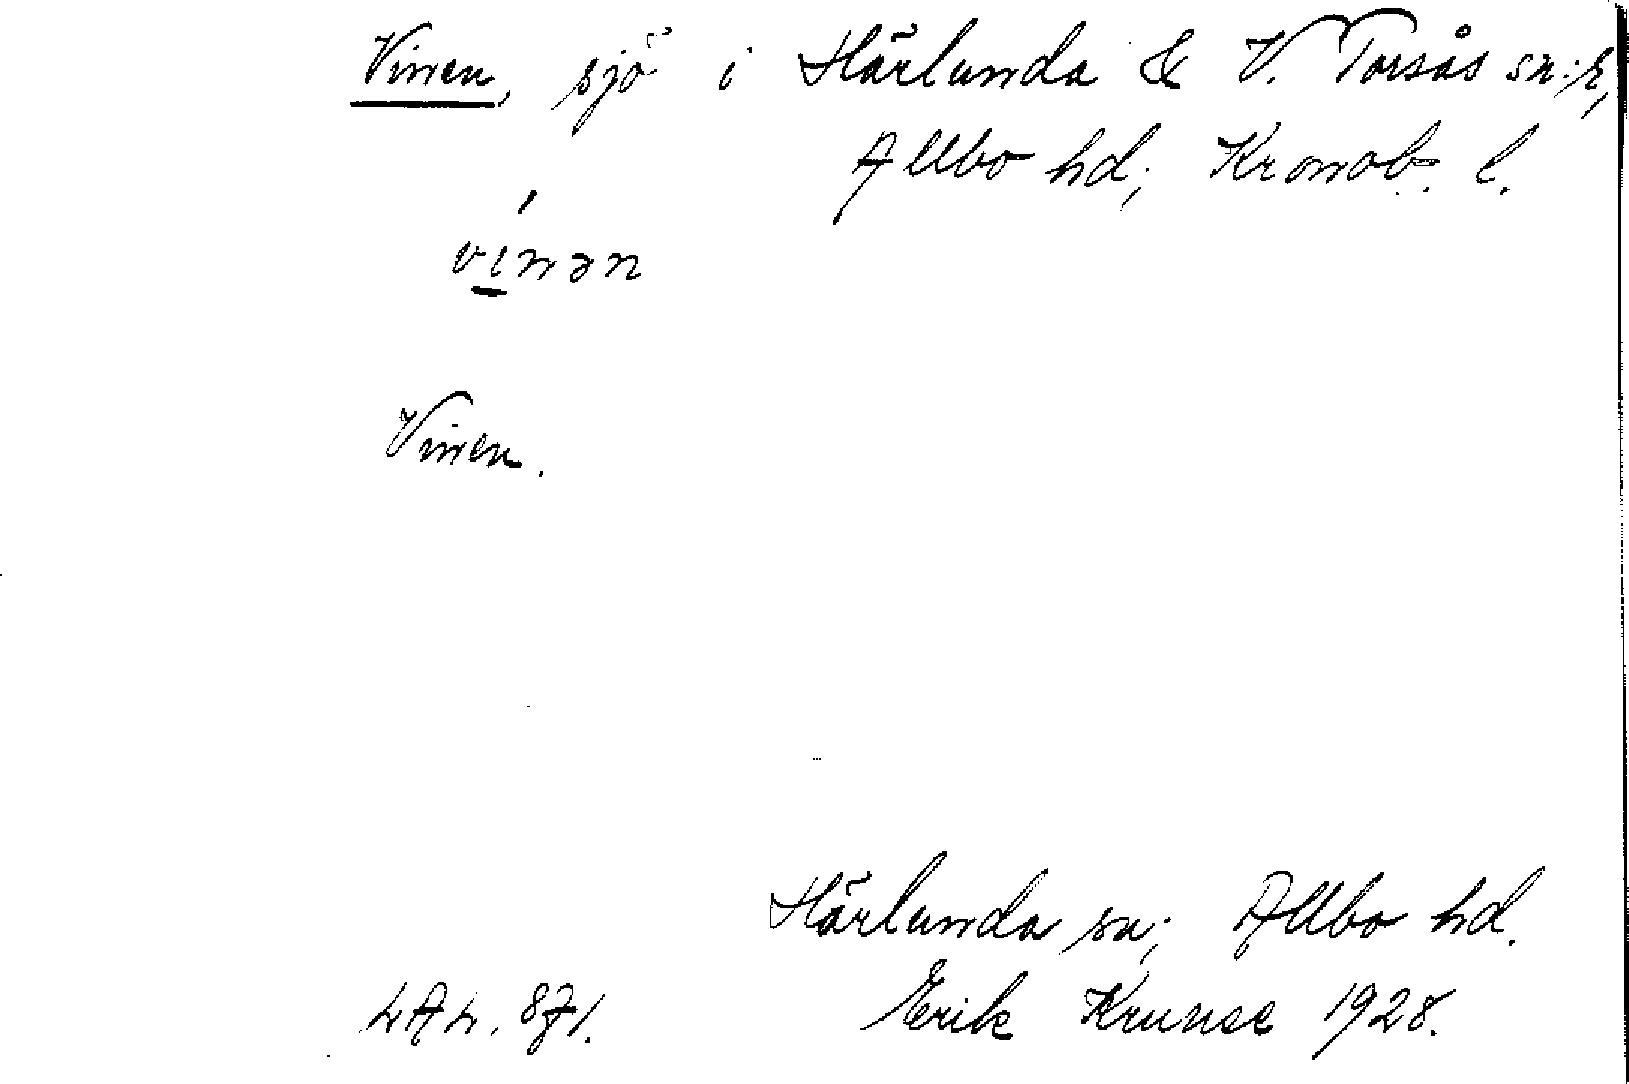 Vinen, sjö i Härlunda & V. Torsås sn:r,
Allbo hd; Kronob. l.
vínən
Vinen.
Härlunda sn; Allbo hd.
LAL. 871. Erik Kruuse 1928.